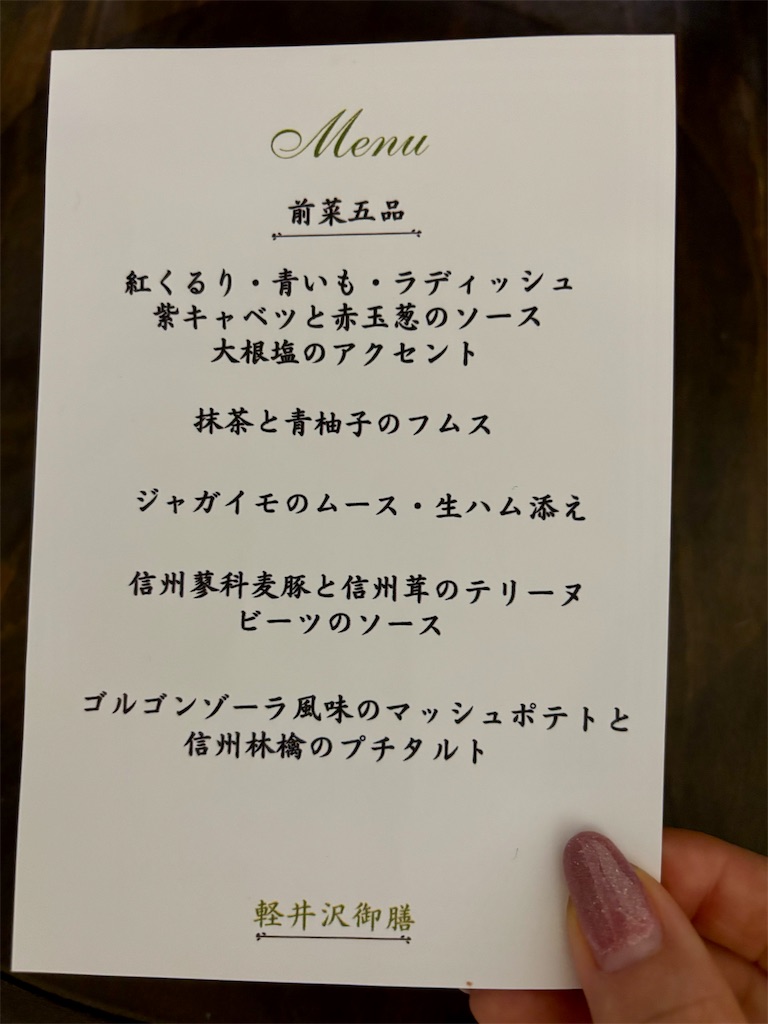 Menu
前菜五品
紅くるり・青いも・ラディッシュ
紫キャベツと赤玉葱のソース
大根塩のアクセント
抹茶と青柚子のフムス
ジャガイモのムース・生ハム添え
信州蓼科麦豚と信州茸のテリーヌ
ビーツのソース
ゴルゴンゾーラ風味のマッシュポテトと
信州林檎のプチタルト
軽井沢御膳